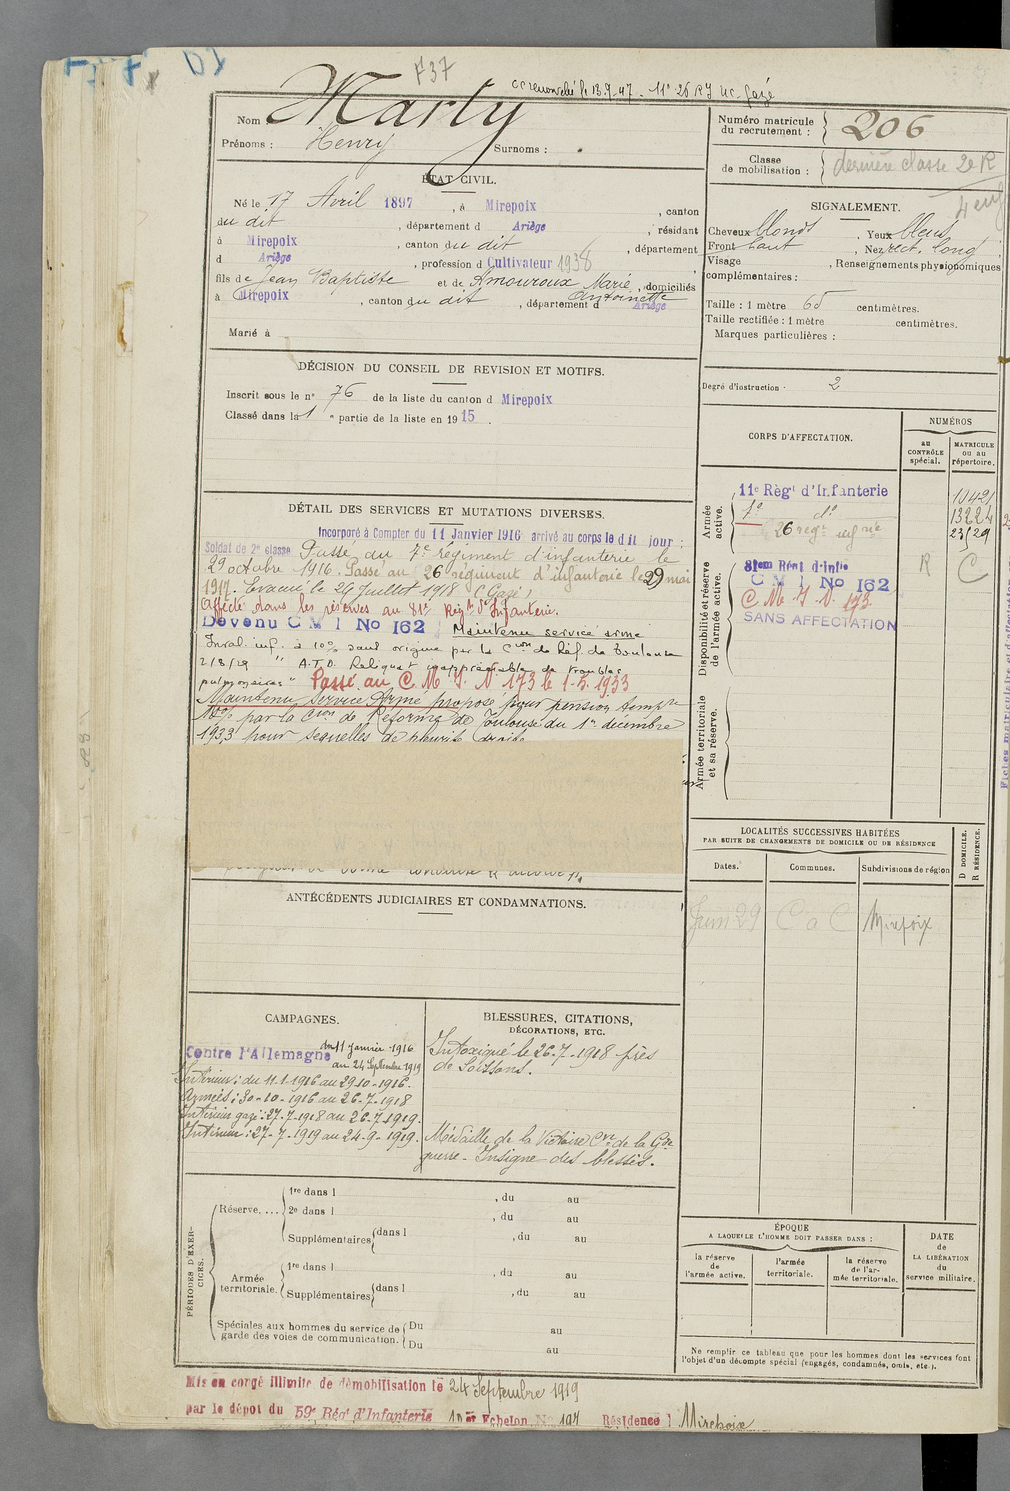 F37
cc renouvelé le 13.9.47 - 11e 26 RI
Nom Marty
Prénoms : Henry Surnoms :
Numéro matricule du recrutement : 206
Classe de mobilisation : dernière classe 2e R
4 enf
ÉTAT CIVIL.
Né le 17 Avril 1897, à Mirepoix, canton
du dit, département d Ariège, résidant
à Mirepoix, canton du dit, département
d Ariège, profession d Cultivateur 1938
fils de Jean Baptiste et de Amouroux Marie Antoinette, domiciliés
à Mirepoix, canton du dit, département d Ariège
Marié à
SIGNALEMENT.
Cheveux blonds. Yeux bleus
Front haut, Nez rect. long
Visage, Renseignements physionomiques
complémentaires :
Taille : 1 mètre 65 centimètres.
Taille rectifiée : 1 mètre centimètres.
Marques particulières :
Degré d'instruction : 2
DÉCISION DU CONSEIL DE REVISION ET MOTIFS.
Inscrit sous le n° 76 de la liste du canton d Mirepoix
Classé dans la 1e partie de la liste en 1915.
DÉTAIL DES SERVICES ET MUTATIONS DIVERSES.
Incorporé à Compter du 11 Janvier 1916 arrivé au corps le dit jour :
Soldat de 2e classe Passé au 7e régiment d'infanterie le
29 octobre 1916. Passé au 26 régiment d'infanterie le 29 mai
1917. Evacué le 26 juillet 1918 (Gazé)
Affecté dans les réserves au 81e Régt d'Infanterie.
Devenu C M I No 162 Maintenu service armé
Inval. inf. à 10% sauf origine par la Cion de Réf. de Toulouse
2/8/29 " A.T.D. Reliquat inappréciable de troubles
pulmonaires" Passé au C.M.I. N° 173 le 1-5-1933
Maintenu Service Armé proposé pour pension temp.re
10% par la Cion de Réforme de Toulouse du 1er décembre
1933 pour sequelles de pleurite droite
CORPS D'AFFECTATION.
NUMÉROS
au CONTRÔLE spécial.
MATRICULE ou au répertoire.
Armée active.
11e Règt d'Infanterie 10421
7e do 13224
26 regt infrie 23129
Disponibilité et réserve de l'armée active.
81em Rént d'Infie R C
C M I No 162
C. M. I. N. 173.
SANS AFFECTATION
Armée territoriale et sa réserve.
LOCALITÉS SUCCESSIVES HABITÉES
PAR SUITE DE CHANGEMENTS DE DOMICILE OU DE RÉSIDENCE
Dates. Communes. Subdivisions de région
D DOMICILE. R RÉSIDENCE.
Juin 29 C a C Mirepoix
ANTÉCÉDENTS JUDICIAIRES ET CONDAMNATIONS.
CAMPAGNES.
Contre l'Allemagne du 11 janvier 1916
au 24 Septembre 1919
Intérieur : du 11-1-1916 au 29-10-1916.
Armées : 30-10-1916 au 26-7-1918
Intérieur gazé : 27-7-1918 au 26-7-1919.
Intérieur : 27-7-1919 au 24-9-1919.
BLESSURES, CITATIONS,
DÉCORATIONS, ETC.
Intoxiqué le 26-7-1918 près
de Soissons.
Médaille de la Victoire Cve de la Gde
guerre - Insigne des blessés.
PÉRIODES D'EXERCICES.
Réserve. ... 1re dans l , du au
2e dans l , du au
Supplémentaires dans l , du au
Armée territoriale. 1re dans l , du au
Supplémentaires dans l , du au
Spéciales aux hommes du service de Du au
garde des voies de communication. Du au
ÉPOQUE
A LAQUELLE L'HOMME DOIT PASSER DANS :
la réserve de l'armée active.
l'armée territoriale.
la réserve de l'armée territoriale.
DATE de LA LIBÉRATION du service militaire.
Ne remplir ce tableau que pour les hommes dont les services font
l'objet d'un décompte spécial (engagés, condamnés, omis, etc.).
Mis en congé illimité de démobilisation le 24 Septembre 1919
par le dépôt du 59e Régt d'Infanterie Echelon No 197 Résidence Mirepoix